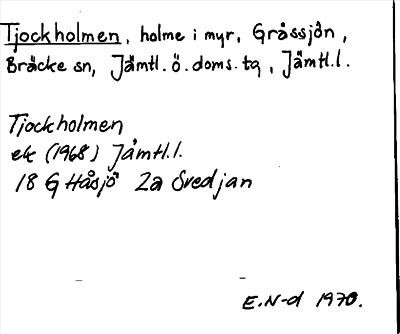 Tjockholmen, holme i myr, Gråssjön,
Bräcke sn, Jämtl. ö. doms. tg, Jämtl. l.
Tjockholmen
ek (1968) Jämtl. l.
18 G Håsjö 2a Svedjan
E. N-d 1970.